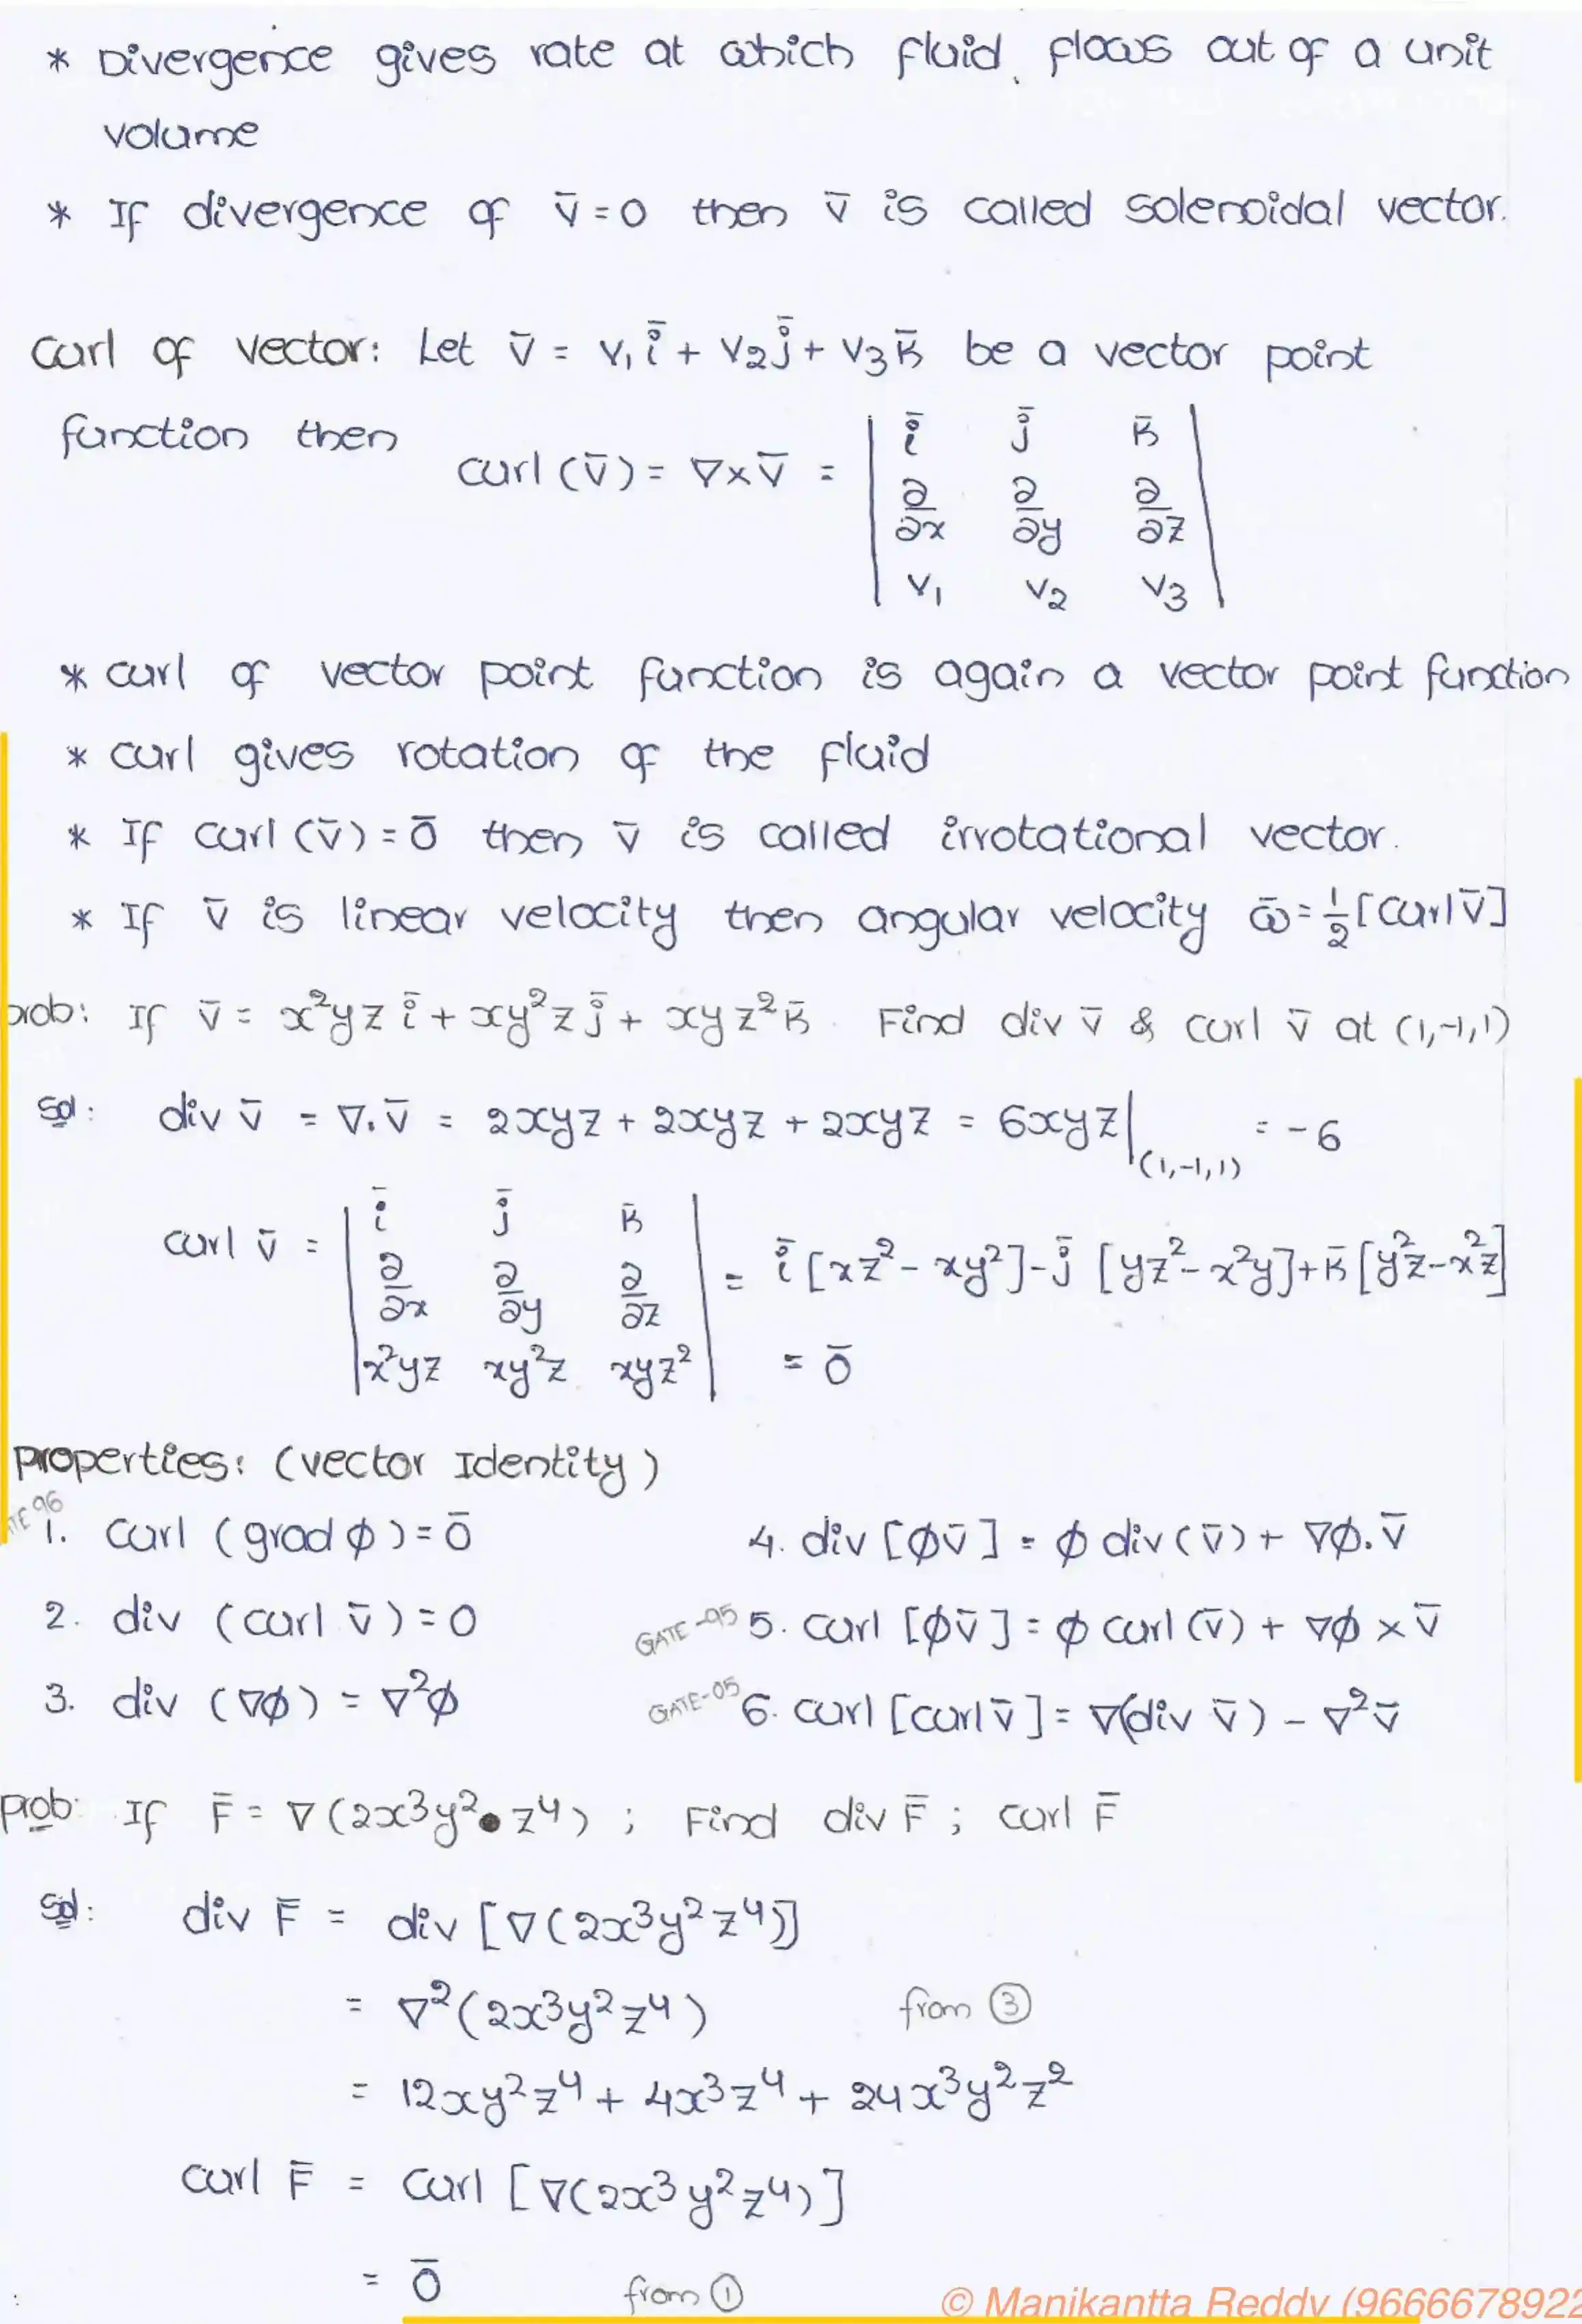 * Divergence gives rate at which fluid flows out of a unit
volume
* If divergence of v̄ = 0 then v̄ is called solenoidal vector.
Curl of vector: Let v̄ = v₁ī + v₂j̄ + v₃k̄ be a vector point
function then curl (v̄) = ∇×v̄ = | ī j̄ k̄ |
| ∂/∂x ∂/∂y ∂/∂z |
| v₁ v₂ v₃ |
* curl of vector point function is again a vector point function
* curl gives rotation of the fluid
* If curl (v̄) = 0̄ then v̄ is called irrotational vector.
* If v̄ is linear velocity then angular velocity ω̄ = 1/2 [curl v̄]
prob: If v̄ = x²yz ī + xy²z j̄ + xyz² k̄. Find div v̄ & curl v̄ at (1,-1,1)
Sol: div v̄ = ∇.v̄ = 2xyz + 2xyz + 2xyz = 6xyz|(1,-1,1) = -6
curl v̄ = | ī j̄ k̄ |
| ∂/∂x ∂/∂y ∂/∂z | = ī [xz² - xy²] - j̄ [yz² - x²y] + k̄ [y²z - x²z]
| x²yz xy²z xyz² | = 0̄
Properties: (vector Identity)
TE 96
1. curl (grad φ) = 0̄ 4. div [φv̄] = φ div (v̄) + ∇φ.v̄
2. div (curl v̄) = 0 GATE-95 5. curl [φv̄] = φ curl (v̄) + ∇φ × v̄
3. div (∇φ) = ∇²φ GATE-05 6. curl [curl v̄] = ∇(div v̄) - ∇²v̄
Prob: If F̄ = ∇(2x³y² z⁴) ; Find div F̄ ; curl F̄
Sol: div F̄ = div [∇(2x³y²z⁴)]
= ∇²(2x³y²z⁴) from ③
= 12xy²z⁴ + 4x³z⁴ + 24x³y²z²
curl F̄ = curl [∇(2x³y²z⁴)]
= 0̄ from ①
© Manikantta Reddy (9666678922